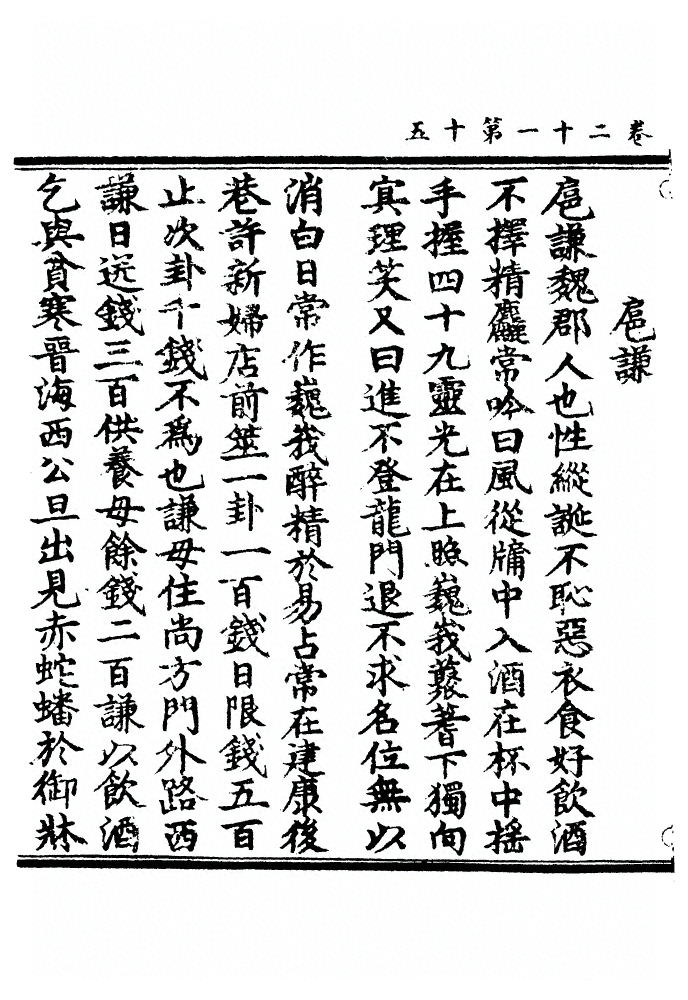 卷二十一第十五
扈謙
扈謙魏郡人也性縱誕不恥惡衣食好飲酒
不擇精麤常吟曰風從牖中入酒在杯中搖
手握四十九靈光在上照巍峩叢蓍下獨向
寘理笑又曰進不登龍門退不求名位無以
消白日常作巍峩醉精於易占常在建康後
巷許新婦店前筮一卦一百錢日限錢五百
止次卦千錢不爲也謙母住尚方門外路西
謙日送錢三百供養母餘錢二百謙以飲酒
乞與貧寒晉海西公旦出見赤蛇蟠於御牀